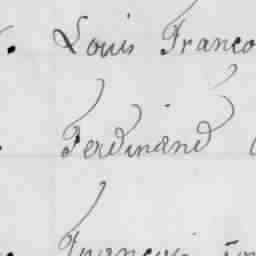 Louis Franco
Ferdinand
François